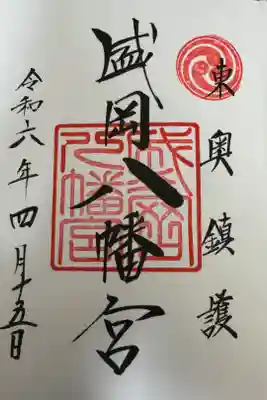 東奥鎮護
盛岡八幡宮
令和六年四月十五日
盛岡八幡宮